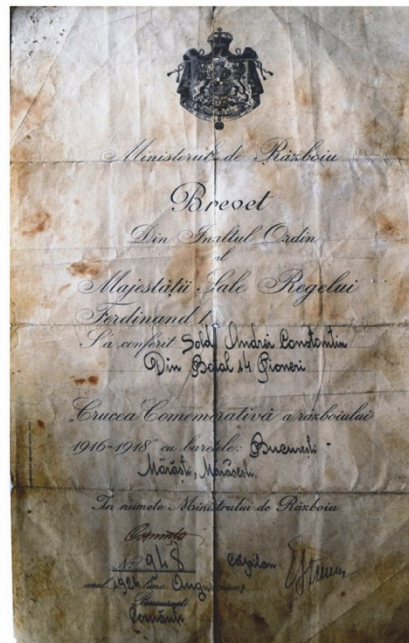 Ministerul de Războiu
Brevet
Din Inaltul Ordin
al
Majestății Sale Regelui
Ferdinand I.
S'a conferit Sold. Andrei Constantin
Din Batal 14 Pioneri
Crucea Comemorativă a războiului
1916-1918 cu baretele: București -
Mărăști, Mărășești.
In numele Ministrului de Războiu
No 948
Căpitan
anul 1924 luna August
România